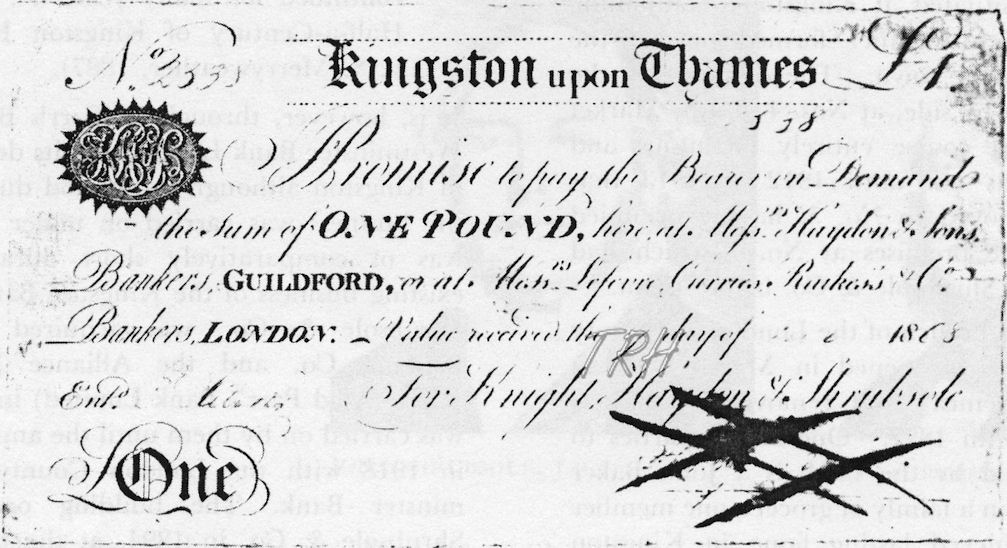 No. 255
Kingston upon Thames
558
I Promise to pay the Bearer on Demand
the Sum of ONE POUND, here at Messrs. Haydon & Sons,
Bankers, GUILDFORD, or at Messrs Lefevre Curries Raikes & Co.
Bankers, LONDON. Value received the day of 180
TRH
Entd. For Knight Haydon & Shrubsole
One